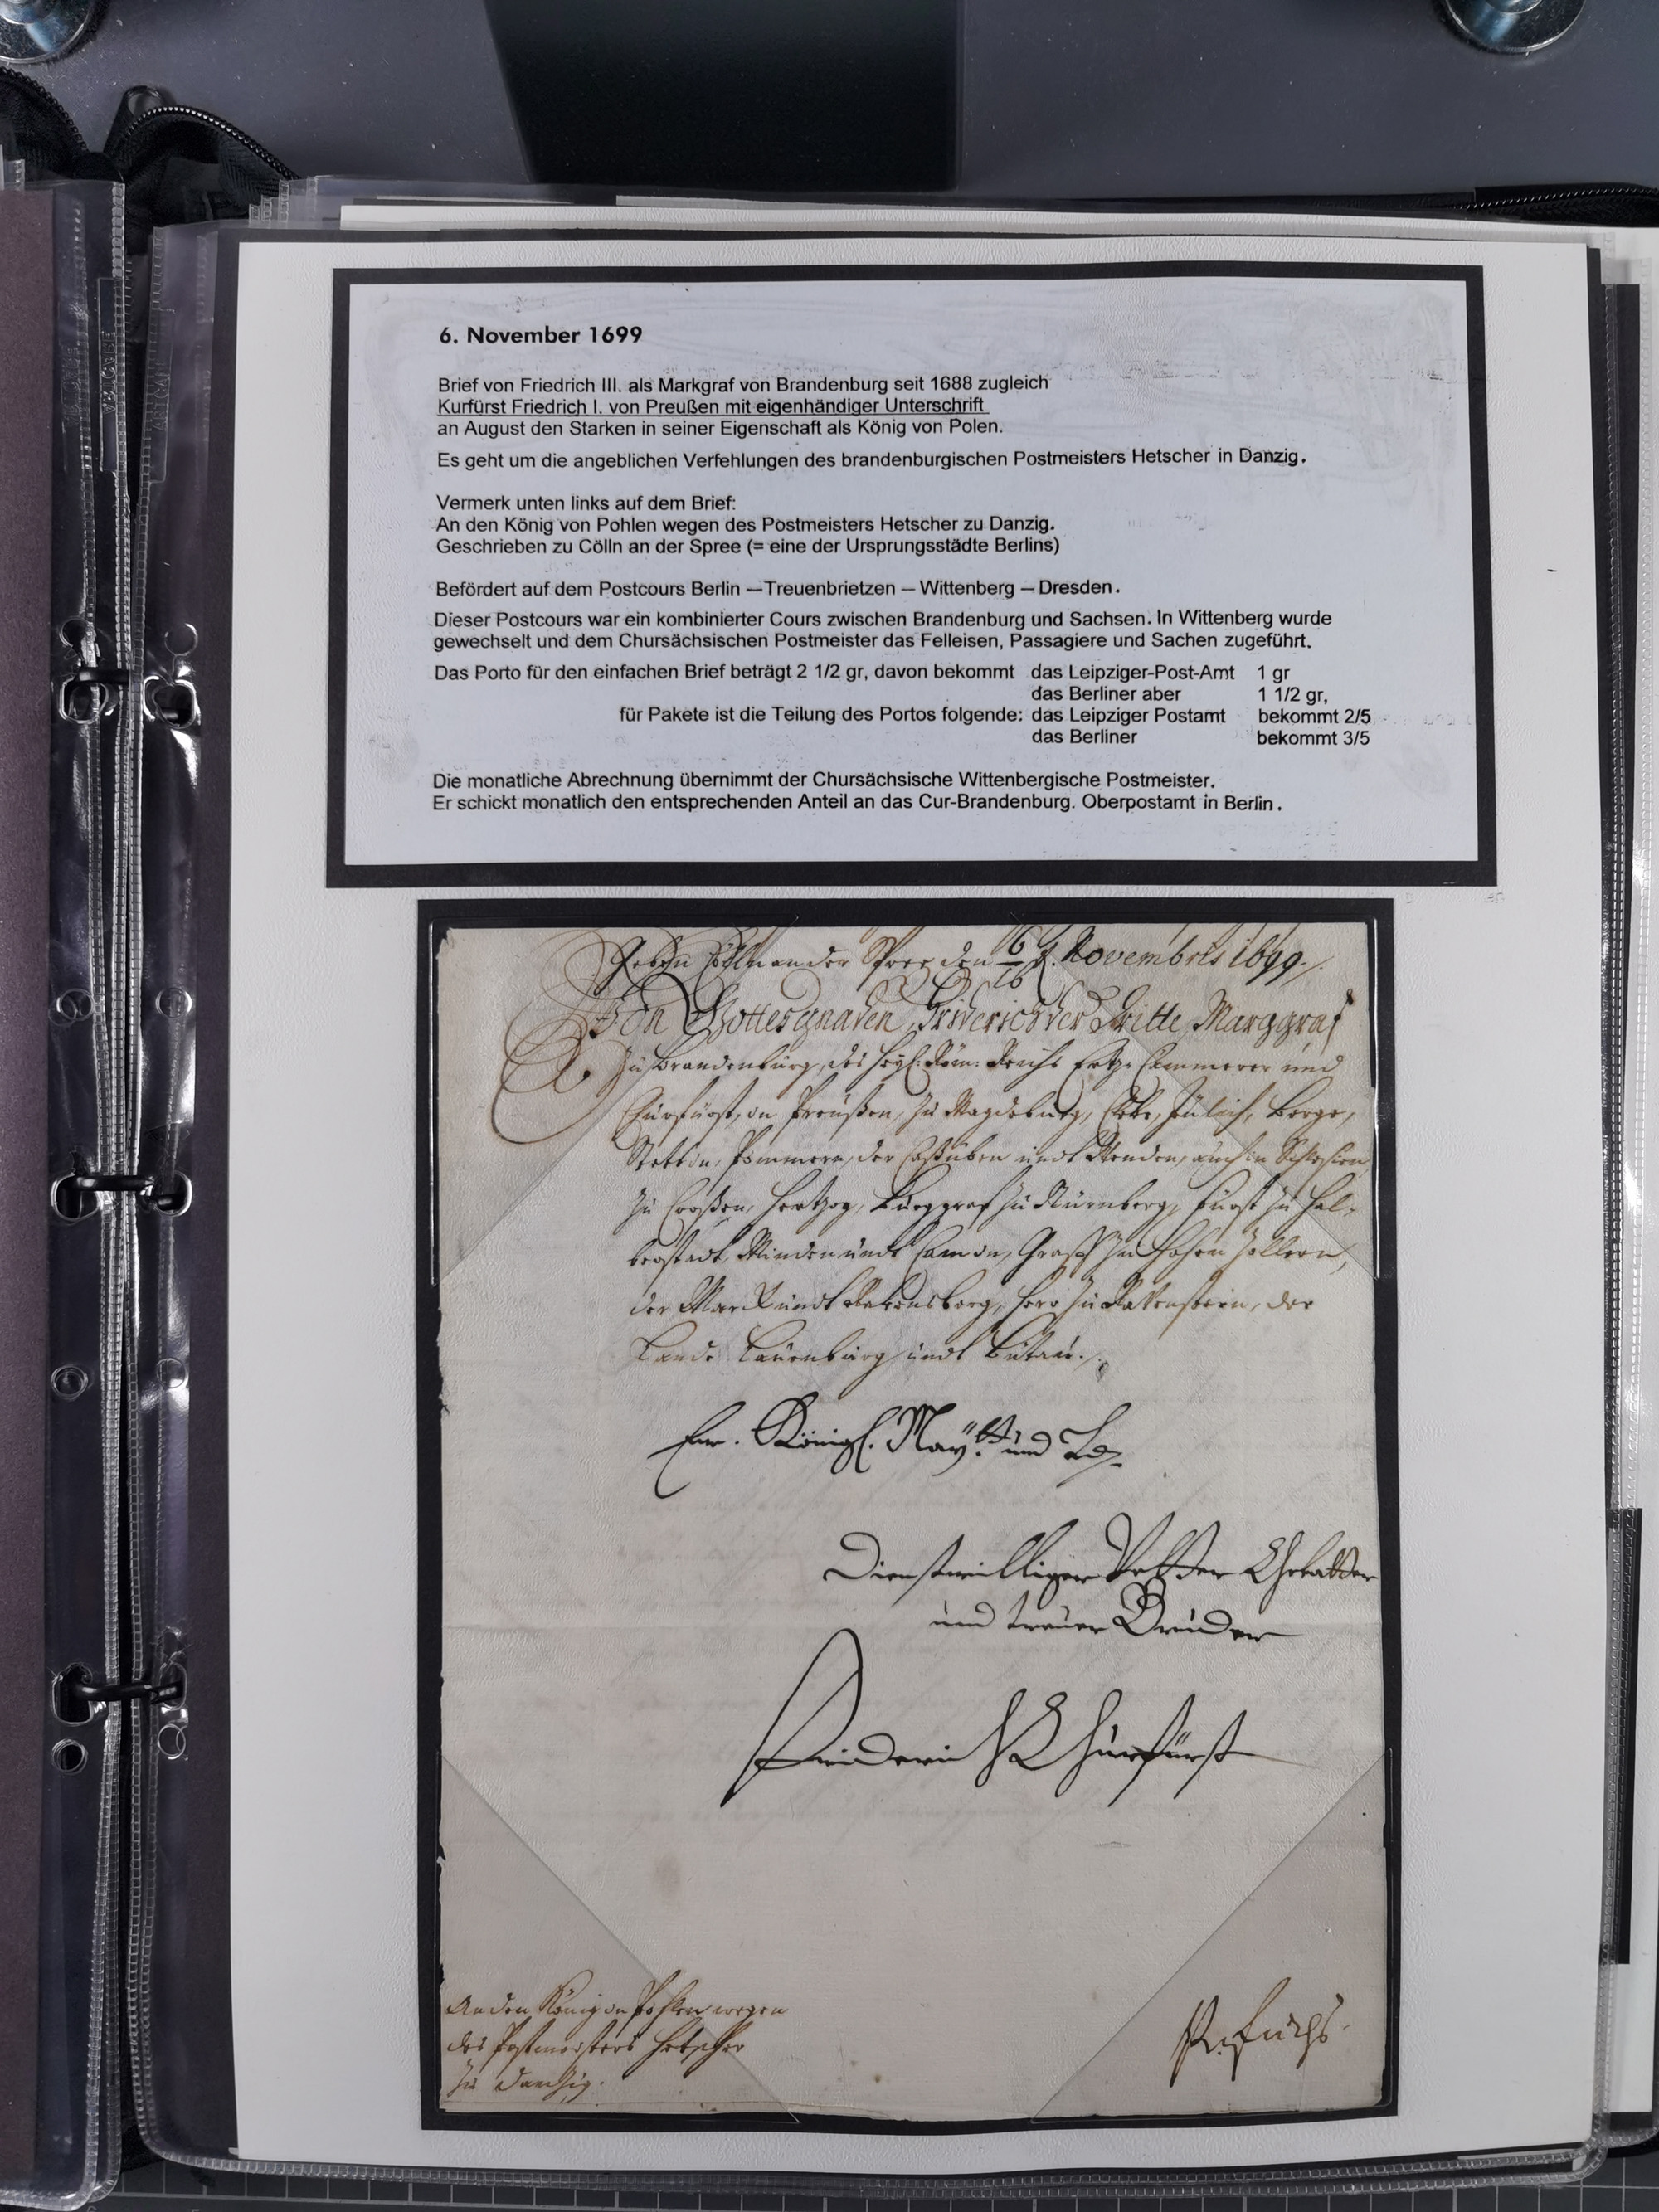 6. November 1699
Brief von Friedrich III. als Markgraf von Brandenburg seit 1688 zugleich
Kurfürst Friedrich I. von Preußen mit eigenhändiger Unterschrift
an August den Starken in seiner Eigenschaft als König von Polen.
Es geht um die angeblichen Verfehlungen des brandenburgischen Postmeisters Hetscher in Danzig.
Vermerk unten links auf dem Brief:
An den König von Pohlen wegen des Postmeisters Hetscher zu Danzig.
Geschrieben zu Cölln an der Spree (= eine der Ursprungsstädte Berlins)
Befördert auf dem Postcours Berlin — Treuenbrietzen — Wittenberg — Dresden.
Dieser Postcours war ein kombinierter Cours zwischen Brandenburg und Sachsen. In Wittenberg wurde
gewechselt und dem Chursächsischen Postmeister das Felleisen, Passagiere und Sachen zugeführt.
Das Porto für den einfachen Brief beträgt 2 1/2 gr, davon bekommt das Leipziger-Post-Amt 1 gr
das Berliner aber 1 1/2 gr,
für Pakete ist die Teilung des Portos folgende: das Leipziger Postamt bekommt 2/5
das Berliner bekommt 3/5
Die monatliche Abrechnung übernimmt der Chursächsische Wittenbergische Postmeister.
Er schickt monatlich den entsprechenden Anteil an das Cur-Brandenburg. Oberpostamt in Berlin.
Cölln an der Spree den 6/16 Novembris 1699.
Von Gottes gnaden, Friderich der Dritte, Marggraf
zu Brandenburg, des Heyl: Röm: Reichs Ertz Cammerer und
Churfürst, in Preußen, zu Magdeburg, Cleve, Jülich, Berge,
Stettin, Pommern, der Caßuben undt Wenden, auch in Schlesien
zu Croßen, Hertzog, Burggraf zu Nürnberg, Fürst zu Hal-
berstadt, Minden undt Camin, Graff zu Hohen Zollern,
der Marck undt Ravensberg, Herr zu Ravenstein, der
Lande Lauenburg undt Bütau.
Ew. Königl. May.tt und Ld.
Dienstwilliger Vetter Gevatter
und treuer Bruder
Friderich Churfürst
An den König in Pohlen wegen
des Postmeisters Hetscher
zu Dantzig.
Fuchs